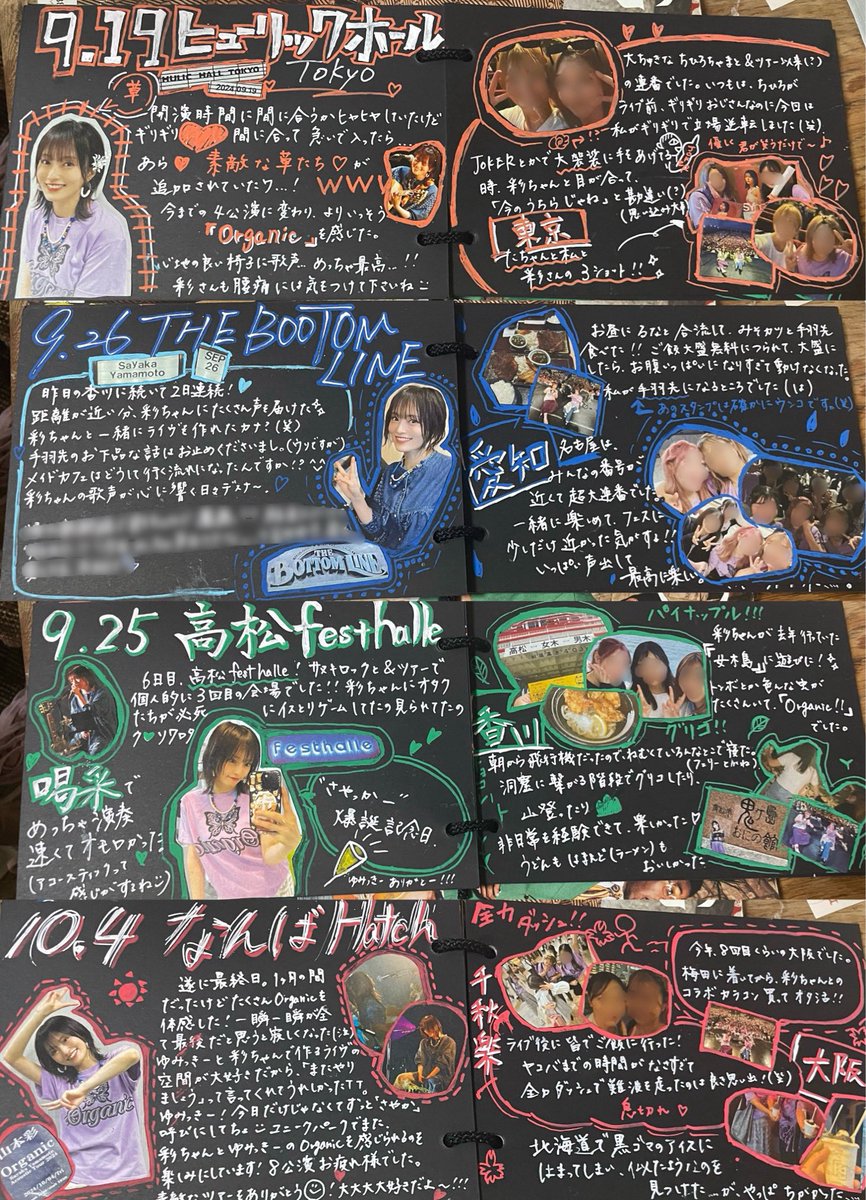 9.19ヒューリックホール
TOKYO
HULIC HALL TOKYO
2024.09.19
草
開演時間に間に合うかヒヤヒヤしていたけど
ギリギリ 間に合って 急いで入ったら
あら 素敵な草たち が
追加されていたワ...!
www
今までの4公演に変わり、よりいっそう
『Organic』を感じた。
心地の良い椅子に歌声...めっちゃ最高...!!
彩さんも腰痛には気をつけて下さいね
大好きな ちひろちゃまと&ツアー以来(?)
の連番でした。いつもは、ちひろが
ライブ前、ギリギリおじさんなのに今日は
私がギリギリで立場逆転しました(笑)
優しい君が笑うだけで〜♪
JOKERとかで大袈裟に手をあげてる
時、彩ちゃんと目が合って、
「今のうちら じゃね」と勘違い(?)
(思い込み大事)
東京
たちゃんと私と
彩さんの3ショット!!
9.26 THE BOOTOM
LINE
Sayaka
Yamamoto
SEP
26
昨日の香川に続いて2日連続!
距離が近い分、彩ちゃんにたくさん声を届けた
彩ちゃんと一緒にライヴを作れたカナ?(笑)
手羽先のお下品な話はお止めくださいまし。(ウソですが)
メイドカフェはどうして行く流れになったんですか!?
彩ちゃんの歌声が心に響く日々デスナ〜。
THE
BOTTOM LINE
お昼にるなと合流して、みそカツと手羽先
食べた!! ご飯大盛無料につられて、大盛に
したら、お腹いっぱいになりすぎて動けなくなった。
私が手羽先になるところでした(は)
あのスタンプは確かにウンコです。(笑)
愛知
名古屋は、
みんなの番号が
近くて超大連番でした
一緒に楽しめて、フェスに
少しだけ近かった気がす!!
いっぱい声出して
最高に楽しい。
9.25 高松festhalle
6日目、高松festhalle! サヌキロックと&ツアーで
個人的に3回目の会場でした!! 彩ちゃんにオタク
たちが必死 にイスとりゲームしてたの見られてたの
ク〜ソワロタ
festhalle
喝采で
めっちゃ演奏
速くてオモロかった
(アコースティックって
感じがするね)
"さやっかー"
爆誕記念日
ゆみっきーありがとー!!!
パイナップル!!!
高松 ― 女木 ― 男木
彩ちゃんが去年行っていた
「女木島」に遊びに!
トンボとか色んな虫が
たくさんいて、「Organic!!」
でした。
グリコ!!
香川
朝から飛行機だったので、ねむくていろんなとこで寝た。
(フェリーとかね)
洞窟に繋がる階段でグリコしたり、
山登ったり
非日常を経験できて、楽しかった
うどんもはまんど(ラーメン)も
おいしかった
鬼ヶ島
おにの館
10.4 なんばHatch
遂に最終日。1ヶ月の間
だったけどたくさんOrganicを
体感した! 一瞬一瞬が全
て最後だと思うと寂しくなった(泣)
ゆみっきーと彩ちゃんで作るライヴの
空間が大好きだから、「またやり
ましょう」って言ってくれてうれしかったです。
ゆみっきー! 今日だけじゃなくてずっと"さやか"
呼びにしてちょ ユニークパークでまた、
彩ちゃんとゆみっきーのOrganicを感じられるのを
楽しみにしています! 8公演お疲れ様でした。
素敵なツアーをありがとう! 大大大大好きだよー!!!
山本彩
Organic
Acoustic Tour 2024
2024/10/04(Fri)
全力ダッシュ!!
千秋楽
今年、8回目くらいの大阪でした。
梅田に着いてから、彩ちゃんとの
コラボカラコン買ってオタ活!!
ライヴ後に皆でご飯に行った!
ヤコバまでの時間がなさすぎて
全力ダッシュで難波を走ったのは良き思い出!(笑)
息切れ
大阪
北海道で黒ゴマのアイスに
はまってしまい、似たようなのを
見つけたーが、やっぱちがかった